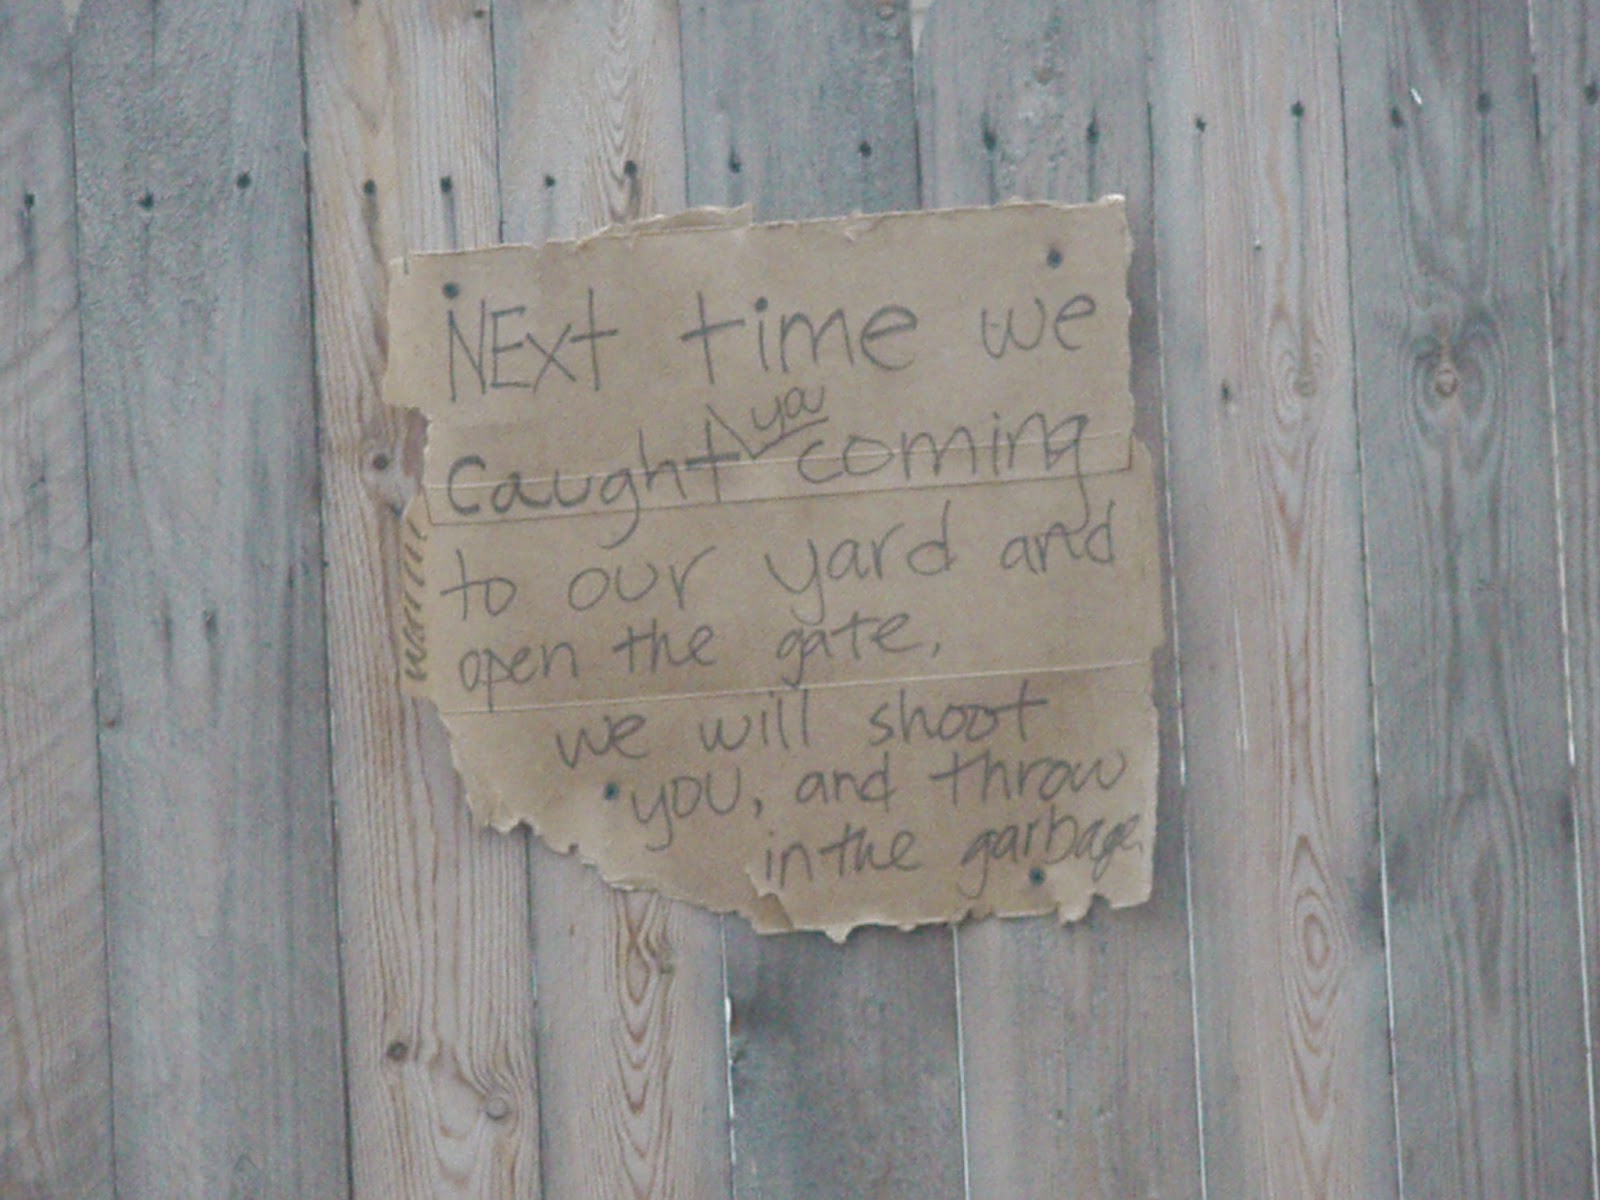 NExt time we
caught ya coming
to our yard and
open the gate,
we will shoot
you, and throw
in the garbage